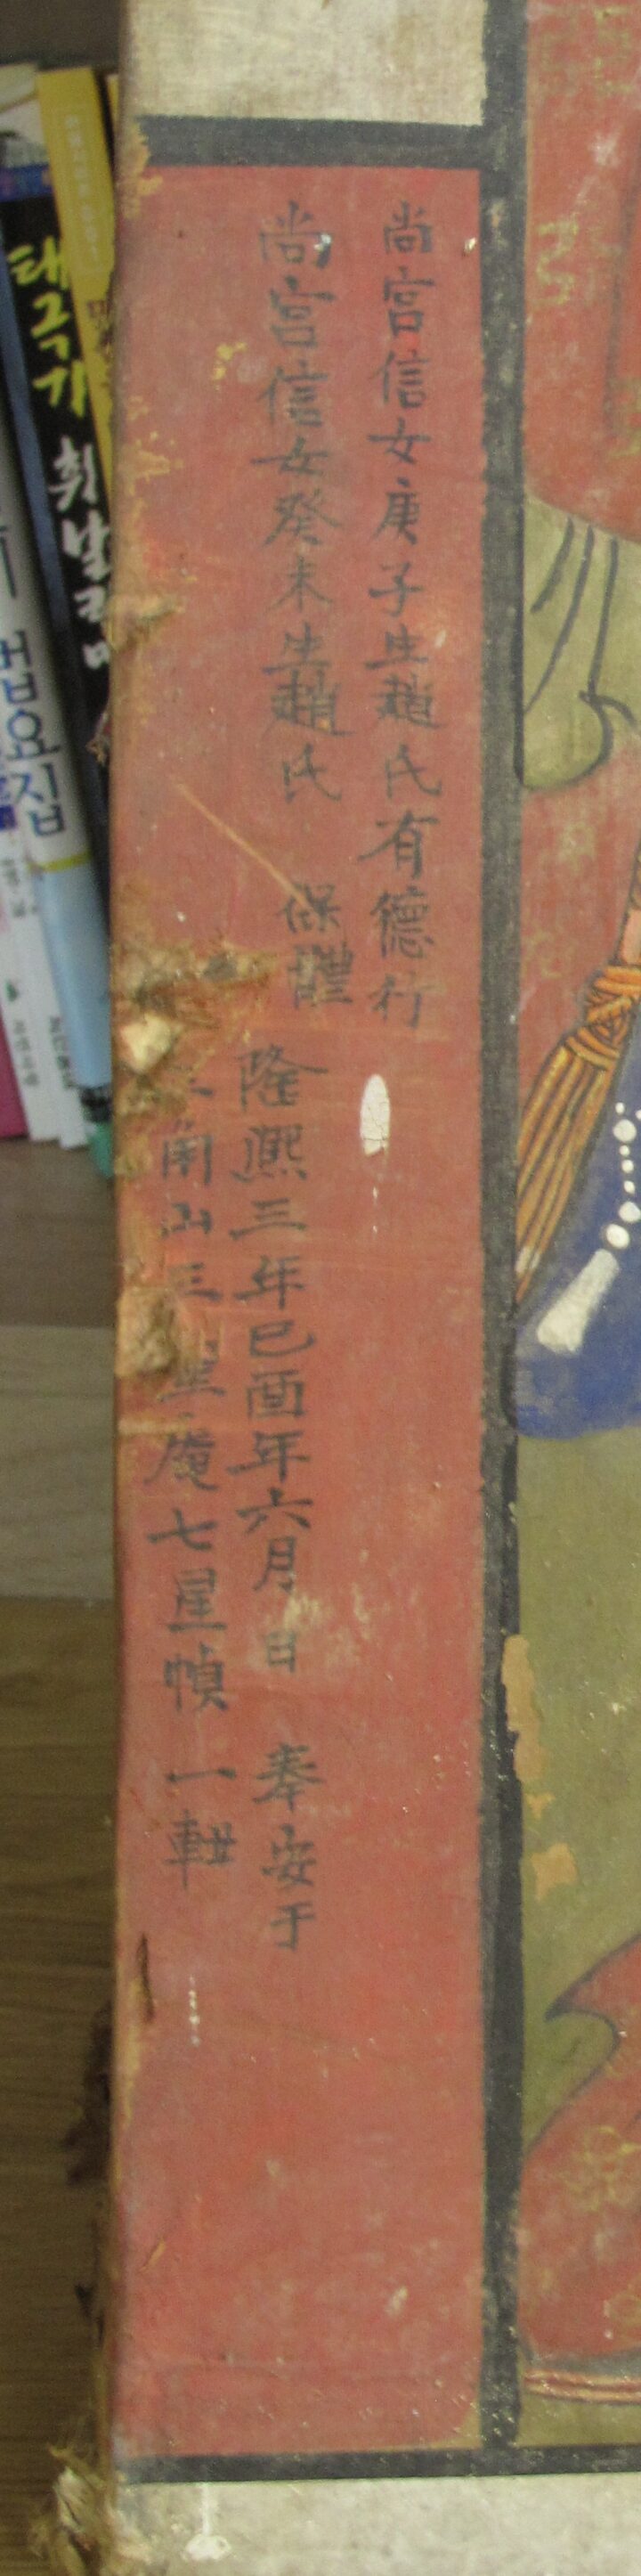 尚宮信女庚子生趙氏有德行
尚宮信女癸未生趙氏 保體
隆熙三年己酉年六月 日 奉安于
南山三聖庵七星幀 一軸
태극기
휘날리며
법요집